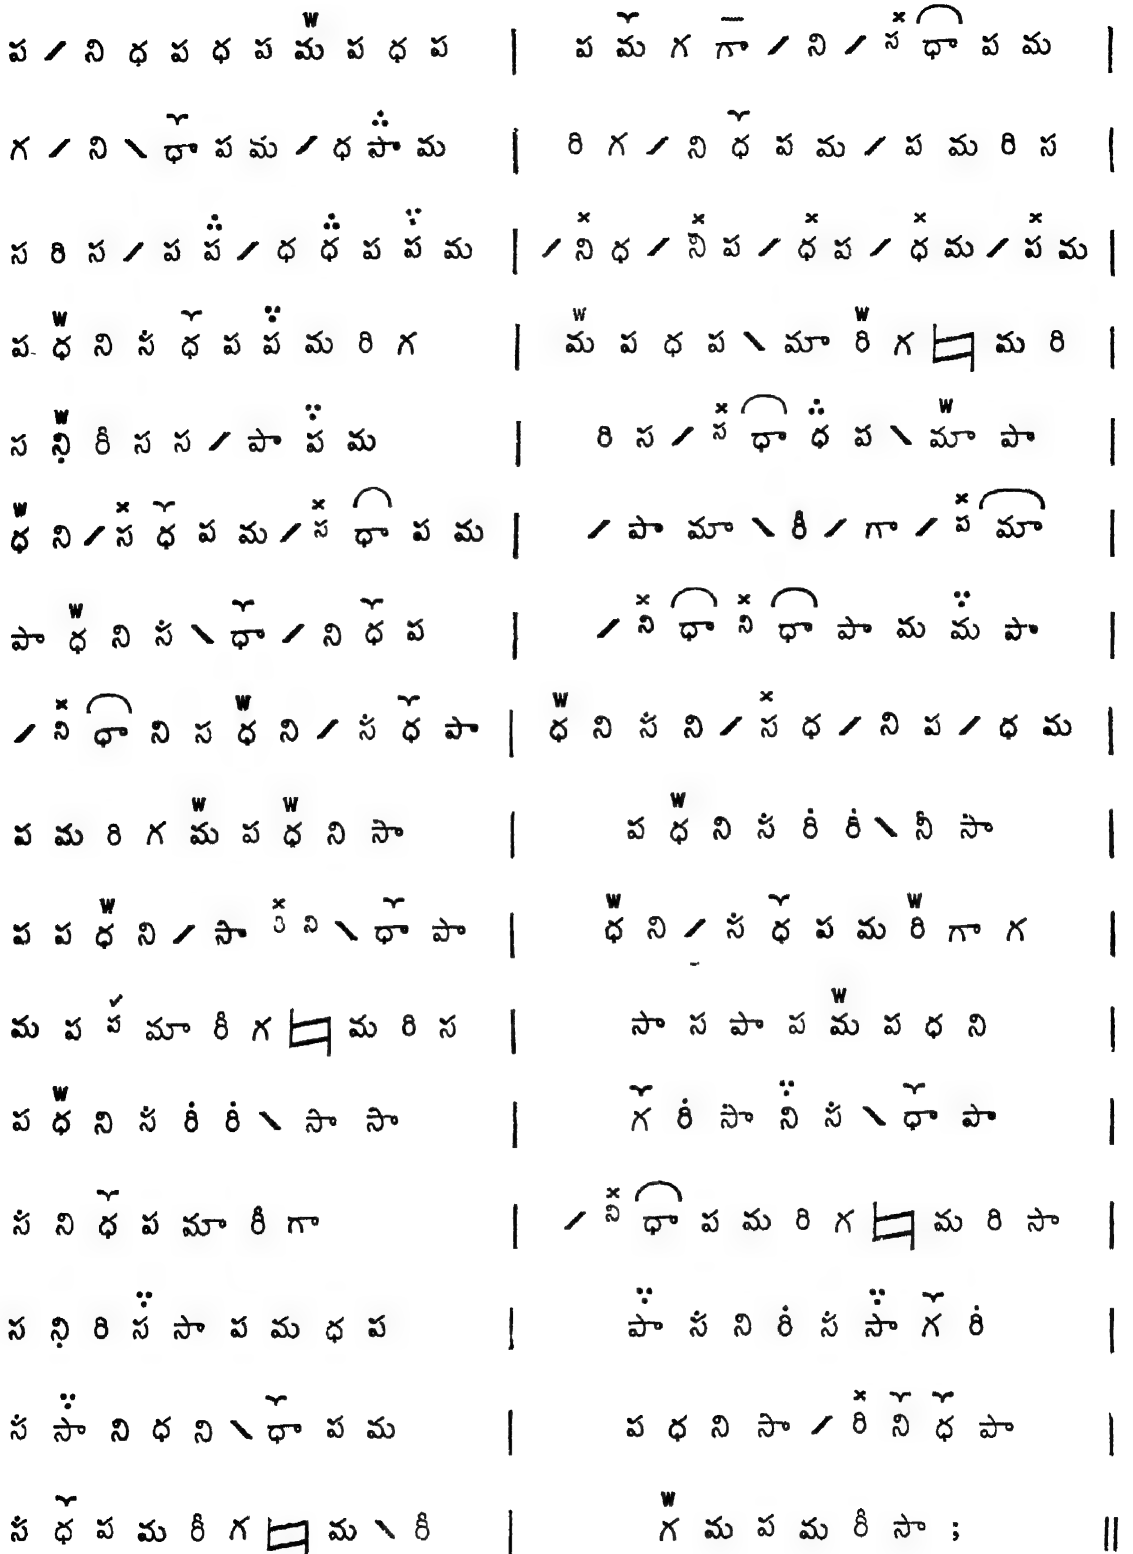 ప / ని ధ ప ధ ప మ ప ధ ప | ప మ గ గా / ని / స ధా ప మ |
గ / ని \ ధా ప మ / ధ పా మ | రి గ / ని ధ ప మ / ప మ రి స |
స రి స / ప ప / ధ ధ ప ప మ | / ని ధ / ని ప / ధ ప / ధ మ / ప మ |
ప ధ ని స ధ ప ప మ రి గ | మ ప ధ ప \ మా రి గ మ రి |
స ని రీ స స / పా ప మ | రి స / స ధా ధ ప \ మా పా |
ధ ని / స ధ ప మ / స ధా ప మ | / పా మా \ రీ / గా / ప మా |
పా ధ ని స \ ధా / ని ధ ప | / ని ధా ని ధా పా మ మ పా |
/ ని ధా ని స ధ ని / స ధ పా | ధ ని స ని / స ధ / ని ప / ధ మ |
ప మ రి గ మ ప ధ ని సా | ప ధ ని స రి రి \ నీ సా |
ప ప ధ ని / సా ని \ ధా పా | ధ ని / స ధ ప మ రి గా గ |
మ ప ప మా రీ గ మ రి స | సా స పా ప మ ప ధ ని |
ప ధ ని స రి రి \ సా సా | గ రి సా ని స \ ధా పా |
స ని ధ ప మా రీ గా | / ని ధా ప మ రి గ మ రి సా |
స ని రి స సా ప మ ధ ప | పా స ని రి స సా గ రి |
స సా ని ధ ని \ ధా ప మ | ప ధ ని సా / రి ని ధ పా |
స ధ ప మ రీ గ మ \ రీ | గ మ ప మ రీ సా ; ||